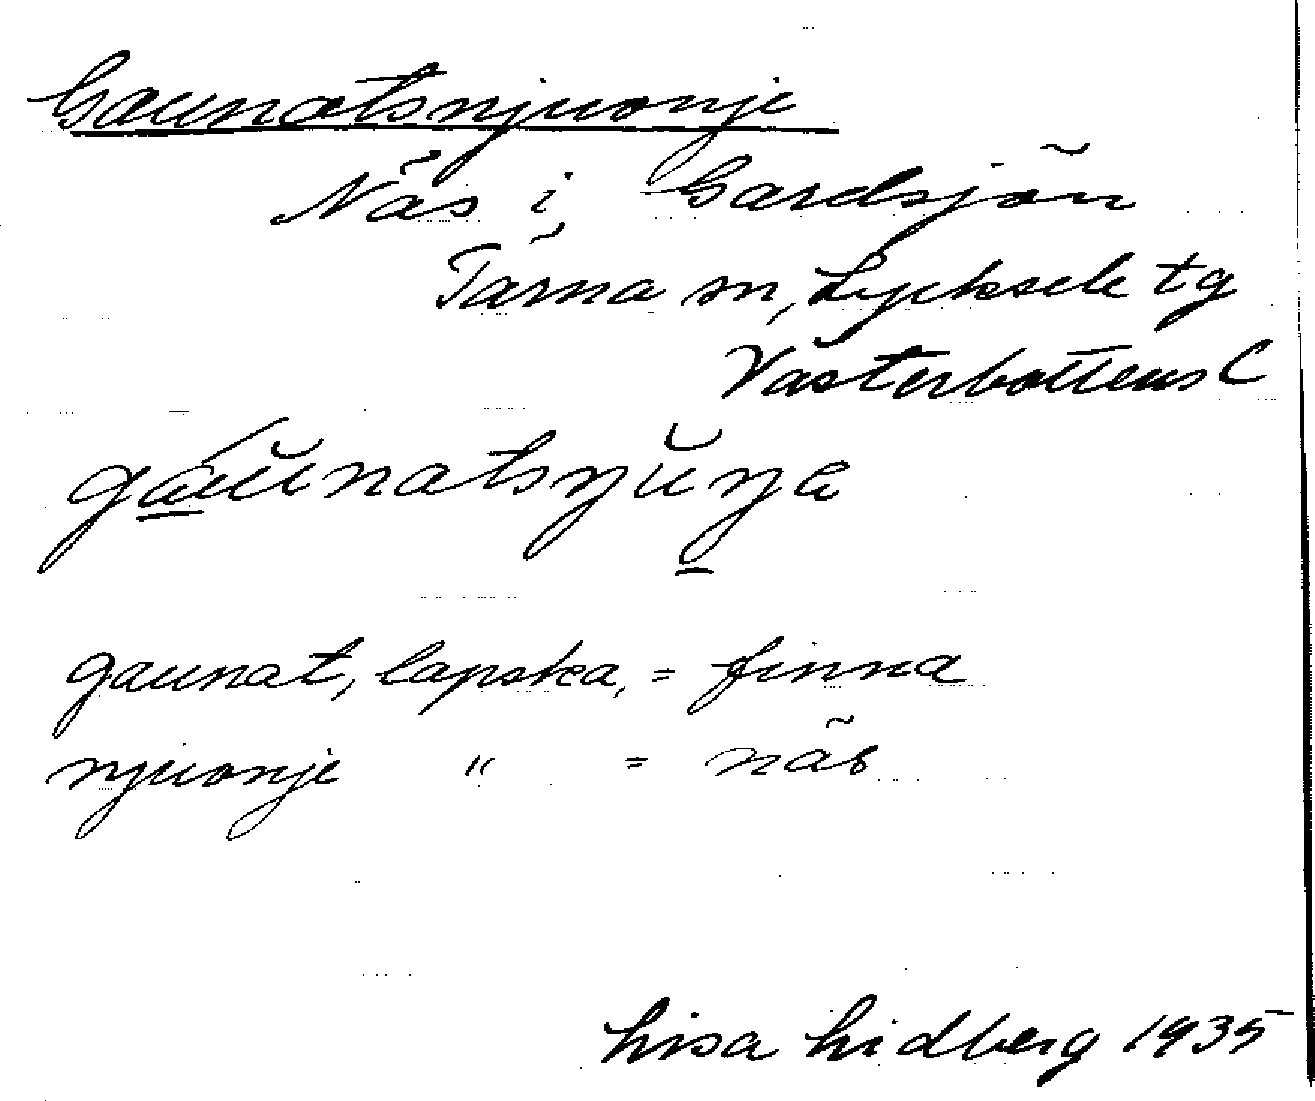 Gaunatsnjuonje
Näs i Gardsjön
Tärna sn, Lycksele tg
Västerbottens L
gaŭnatsŋŭŋe
gaunat, lapska, = finna
njuonje " = näs
Lisa Lidberg 1935